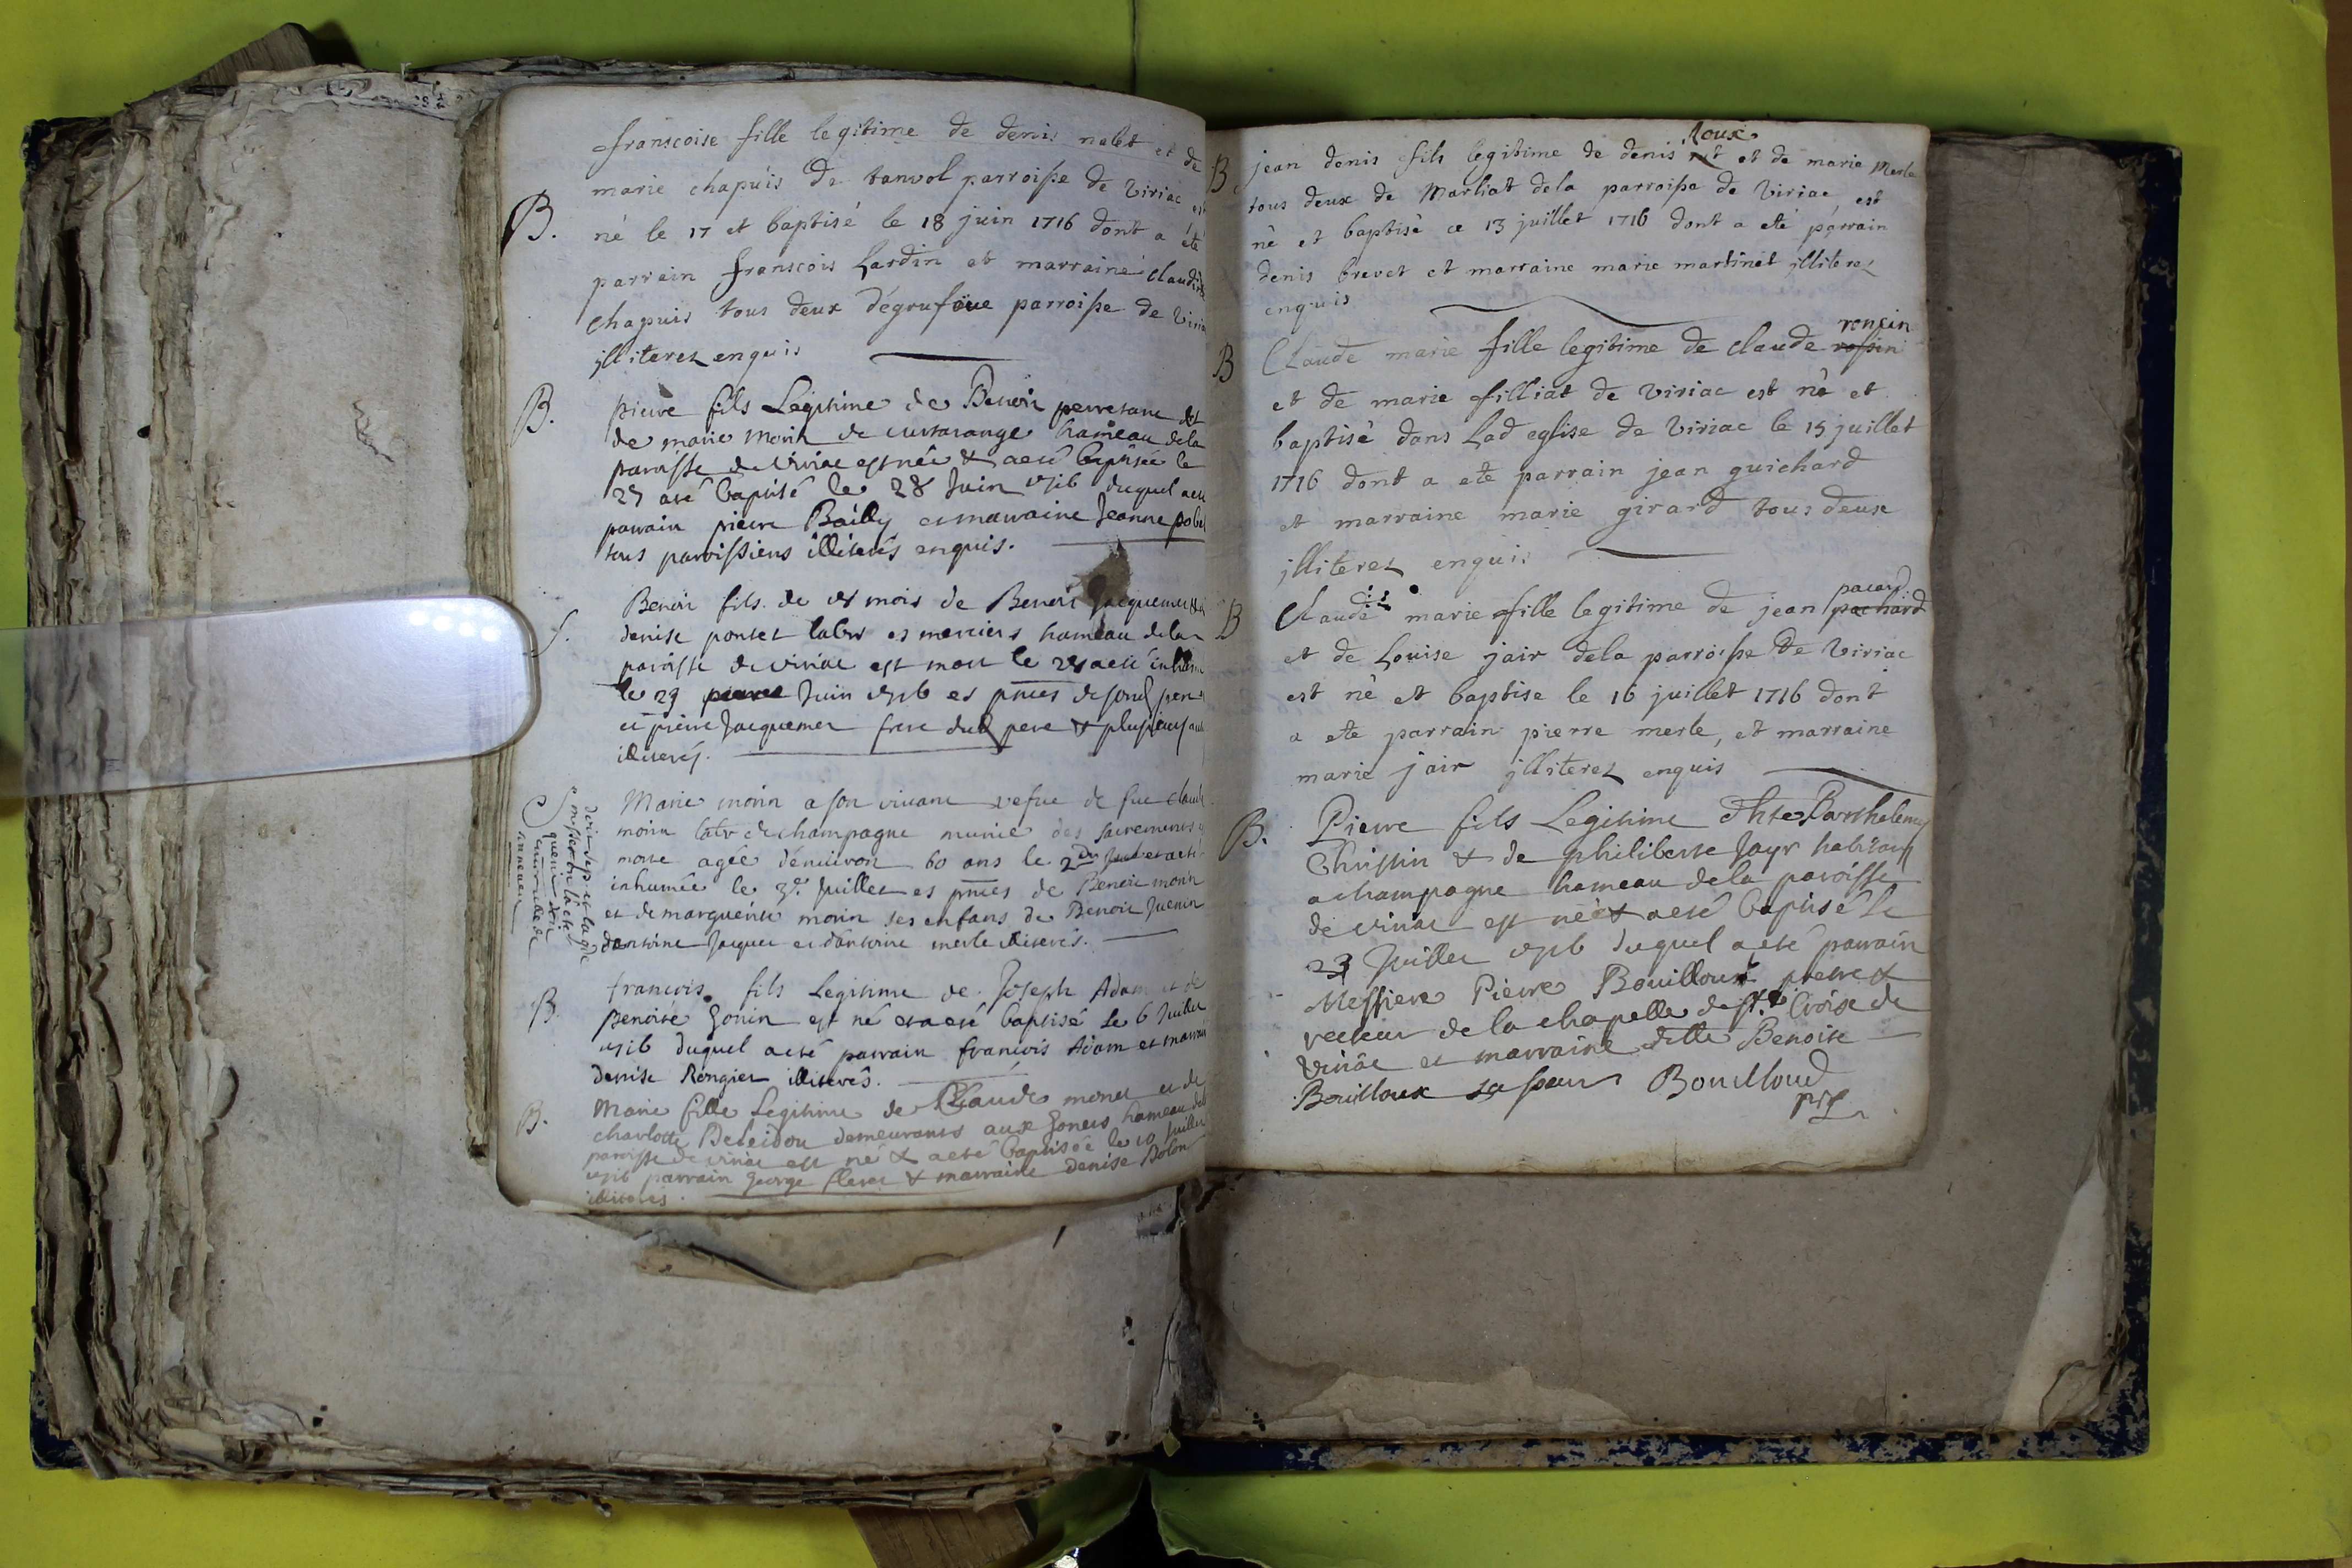 fransçoise fille legitime de denis nalet et de
marie chapuis de tanvol parroisse de viriac est
B. né le 17 et baptisé le 18 juin 1716 dont a été
parrain fransçois Lardin et marraine claudine
chapuis tous deux parroisse de viriac
illiterez enquis
B. pierre fils Legitime de Benoit perretant et
de marie morin de curtarange hameau dela
paroisse de viriac est née & a eté baptisée le
27 a eté baptisé le 28 Juin 1716 duquel a eté
parrain pierre Bailly et marraine Jeanne pobel
tous paroissiens illiterés enquis.
S. Benoit fils de mois de Benoit Jacquemet & de
denise poncet labr es merciers hameau dela
paroisse de viriac est mort le 28 a eté inhumé
le 29 Juin 1716 es pnces de sond pere
et pierre Jacquemet frere dud pere & plusieurs
illiterés.
Marie morin a son vivant vefue de feu claude
morin labr de champagne munie des sacremens
morte agée d'environ 60 ans le 2d Juillet a eté
inhumée le 3e Juillet es pnces de Benoit morin
et de marguerite morin ses enfans de Benoit Juenin
d'antoine Jacquet et d'antoine merle illiterés.
B. francois fils Legitime de Joseph Adam et de
Benoite Gonin est né et a eté baptisé le 6 Juillet
1716 duquel a eté parrain francois Adam et marraine
denise Rongier illiterés.
B. Marie fille Legitime de Claude monet et de
charlotte demeurants aux Goners hameau dela
paroisse de viriac est né & a eté baptisée le 10 Juillet
1716 parrain George & marraine denise Bolon
illiterés.
B jean denis fils legitime de denis roux et de marie Merle
tous deux de Marliat dela parroisse de viriac, est
né et baptisé ce 13 juillet 1716 dont a eté parrain
denis brevet et marraine marie martinet illiterez
enquis
roncin
B Claude marie fille legitime de claude rossin
et de marie filliat de viriac est né et
baptisé dans Lad eglise de viriac le 15 juillet
1716 dont a eté parrain jean guichard
et marraine marie girard tous deux
illiterez enquis
pacard
B Claude marie fille legitime de jean pachard
et de Louise jair dela parroisse de viriac
est né et baptise le 16 juillet 1716 dont
a eté parrain pierre merle, et marraine
marie jair illiterez enquis
B. Pierre fils Legitime Barthelemy
Christin & de philiberte Jayr habitans
a champagne hameau dela paroisse
de viriac est né & a eté baptisé le
23 Juillet 1716 duquel a eté parrain
Messire Pierre Bouilloux pretre &
recteur de la chapelle de ste Croix de
viriac et marraine delle Benoite
Bouilloux sa soeur Bouilloud
ptre